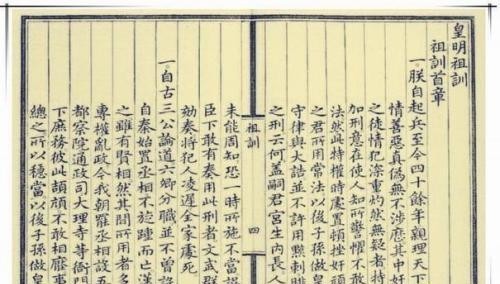 皇明祖訓
祖訓首章
一朕自起兵至今四十餘年親理天下
情善惡真偽無不涉歷其中奸
之徒情犯深重灼然無疑者特
加刑意在使人知所警懼不敢
法然此特權時處置頓挫奸頑
之君所用常法以後子孫做皇
守律與大誥並不許用黥刺
之刑云何蓋嗣君宮生內長人
祖訓 四
未能周知恐一時所施不當誤
臣下敢有奏用此刑者文武群
劾奏將犯人凌遲全家處死
一自古三公論道六卿分職並不曾設
自秦始置丞相不旋踵而亡漢
之雖有賢相然其間所用者多
專權亂政今我朝罷丞相設五
都察院通政司大理寺等衙門
下庶務彼此頡頏不敢相壓事
總之所以穩當以後子孫做皇